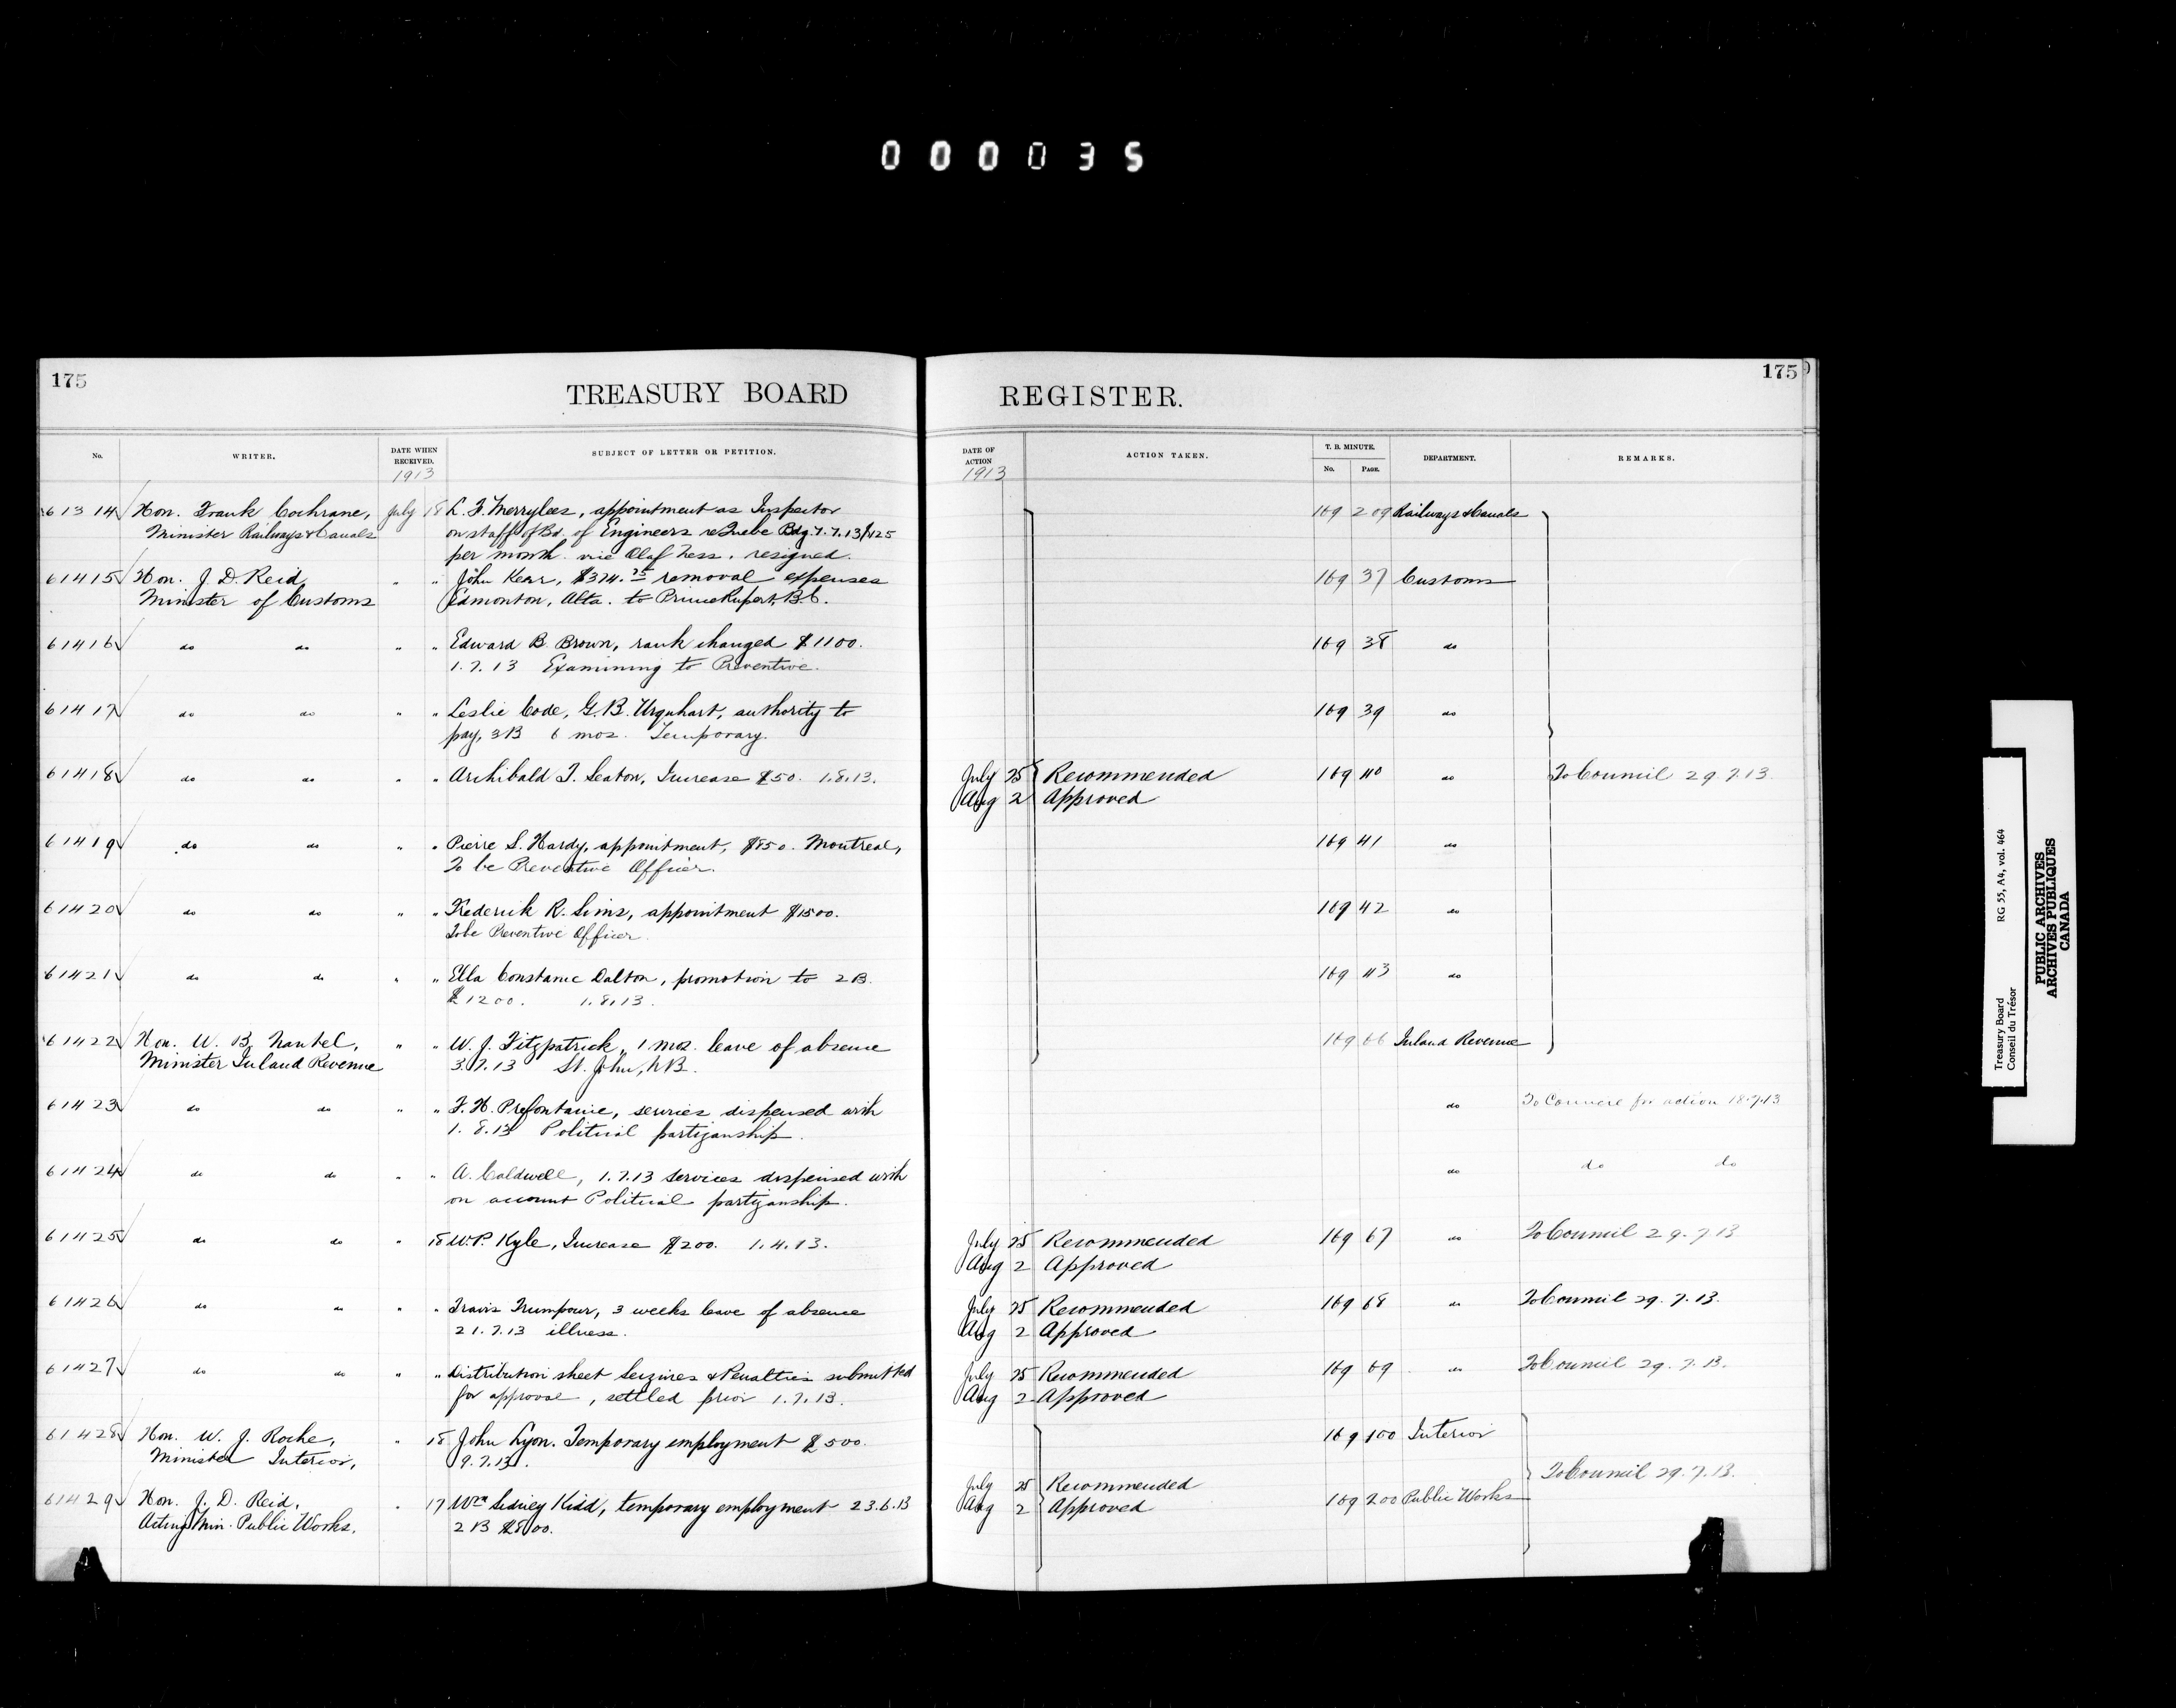 000035
175
TREASURY BOARD REGISTER.
175
No. WRITER. DATE WHEN RECEIVED. SUBJECT OF LETTER OR PETITION. DATE OF ACTION ACTION TAKEN. T. B. MINUTE. No. PAGE. DEPARTMENT. REMARKS.
1913 1913
61314 Hon. Frank Cochrane, July 18 L. F. Merrylees, appointment as Inspector 169 209 Railways & Canals
Minister Railways & Canals on staff of Bd. of Engineers re Quebe Bdg. 7.7.13 $125
per month vice Olaf Ness. resigned.
61415 Hon. J. D. Reid " " John Kear, $374.75 removal expenses 169 37 Customs
Minister of Customs Edmonton, Alta. to Prince Rupert, B.C.
61416 do do " " Edward B. Brown, rank changed $1100. 169 38 do
1.7.13 Examining to Preventive.
61417 do do " " Leslie Code, G. B. Urquhart, authority to 169 39 do
pay, 3B 6 mos. Temporary.
61418 do do " " Archibald T. Seaton, Increase $50. 1.8.13. July 25 Recommended 169 40 do To Council 29.7.13.
Aug 2 Approved
61419 do do " " Pierre S. Hardy, appointment, $850. Montreal, 169 41 do
To be Preventive Officer.
61420 do do " " Frederick R. Sims, appointment $1500. 169 42 do
To be Preventive Officer.
61421 do do " " Ella Constance Dalton, promotion to 2B. 169 43 do
$1200. 1.8.13.
61422 Hon. W. B. Nantel, " " W. J. Fitzpatrick, 1 mos. leave of absence 169 66 Inland Revenue
Minister Inland Revenue 3.7.13 St. John, N.B.
61423 do do " " F. H. Prefontaine, services dispensed with do To Council for action 18.7.13
1.8.13 Political partizanship.
61424 do do " " A. Caldwell, 1.7.13 services dispensed with do do do
on account Political partizanship.
61425 do do " 18 W. P. Kyle, Increase $200. 1.4.13. July 25 Recommended 169 67 do To Council 29.7.13
Aug 2 Approved
61426 do do " " Travis Trumpour, 3 weeks leave of absence July 25 Recommended 169 68 do To Council 29.7.13.
21.7.13 illness. Aug 2 Approved
61427 do do " " Distribution sheet Seizures & Penalties submitted July 25 Recommended 169 69 do To Council 29.7.13.
for approval, settled prior 1.7.13. Aug 2 Approved
61428 Hon. W. J. Roche, " 18 John Lyon. Temporary employment $500. 169 100 Interior
Minister Interior, 9.7.13.
To Council 29.7.13.
61429 Hon. J. D. Reid, " 17 Wm Sidney Kidd, temporary employment 23.6.13 July 25 Recommended 169 200 Public Works
Acting Min. Public Works. 2B $800. Aug 2 Approved
Treasury Board RG 55, A4, vol. 464
Conseil du Trésor
PUBLIC ARCHIVES
ARCHIVES PUBLIQUES
CANADA